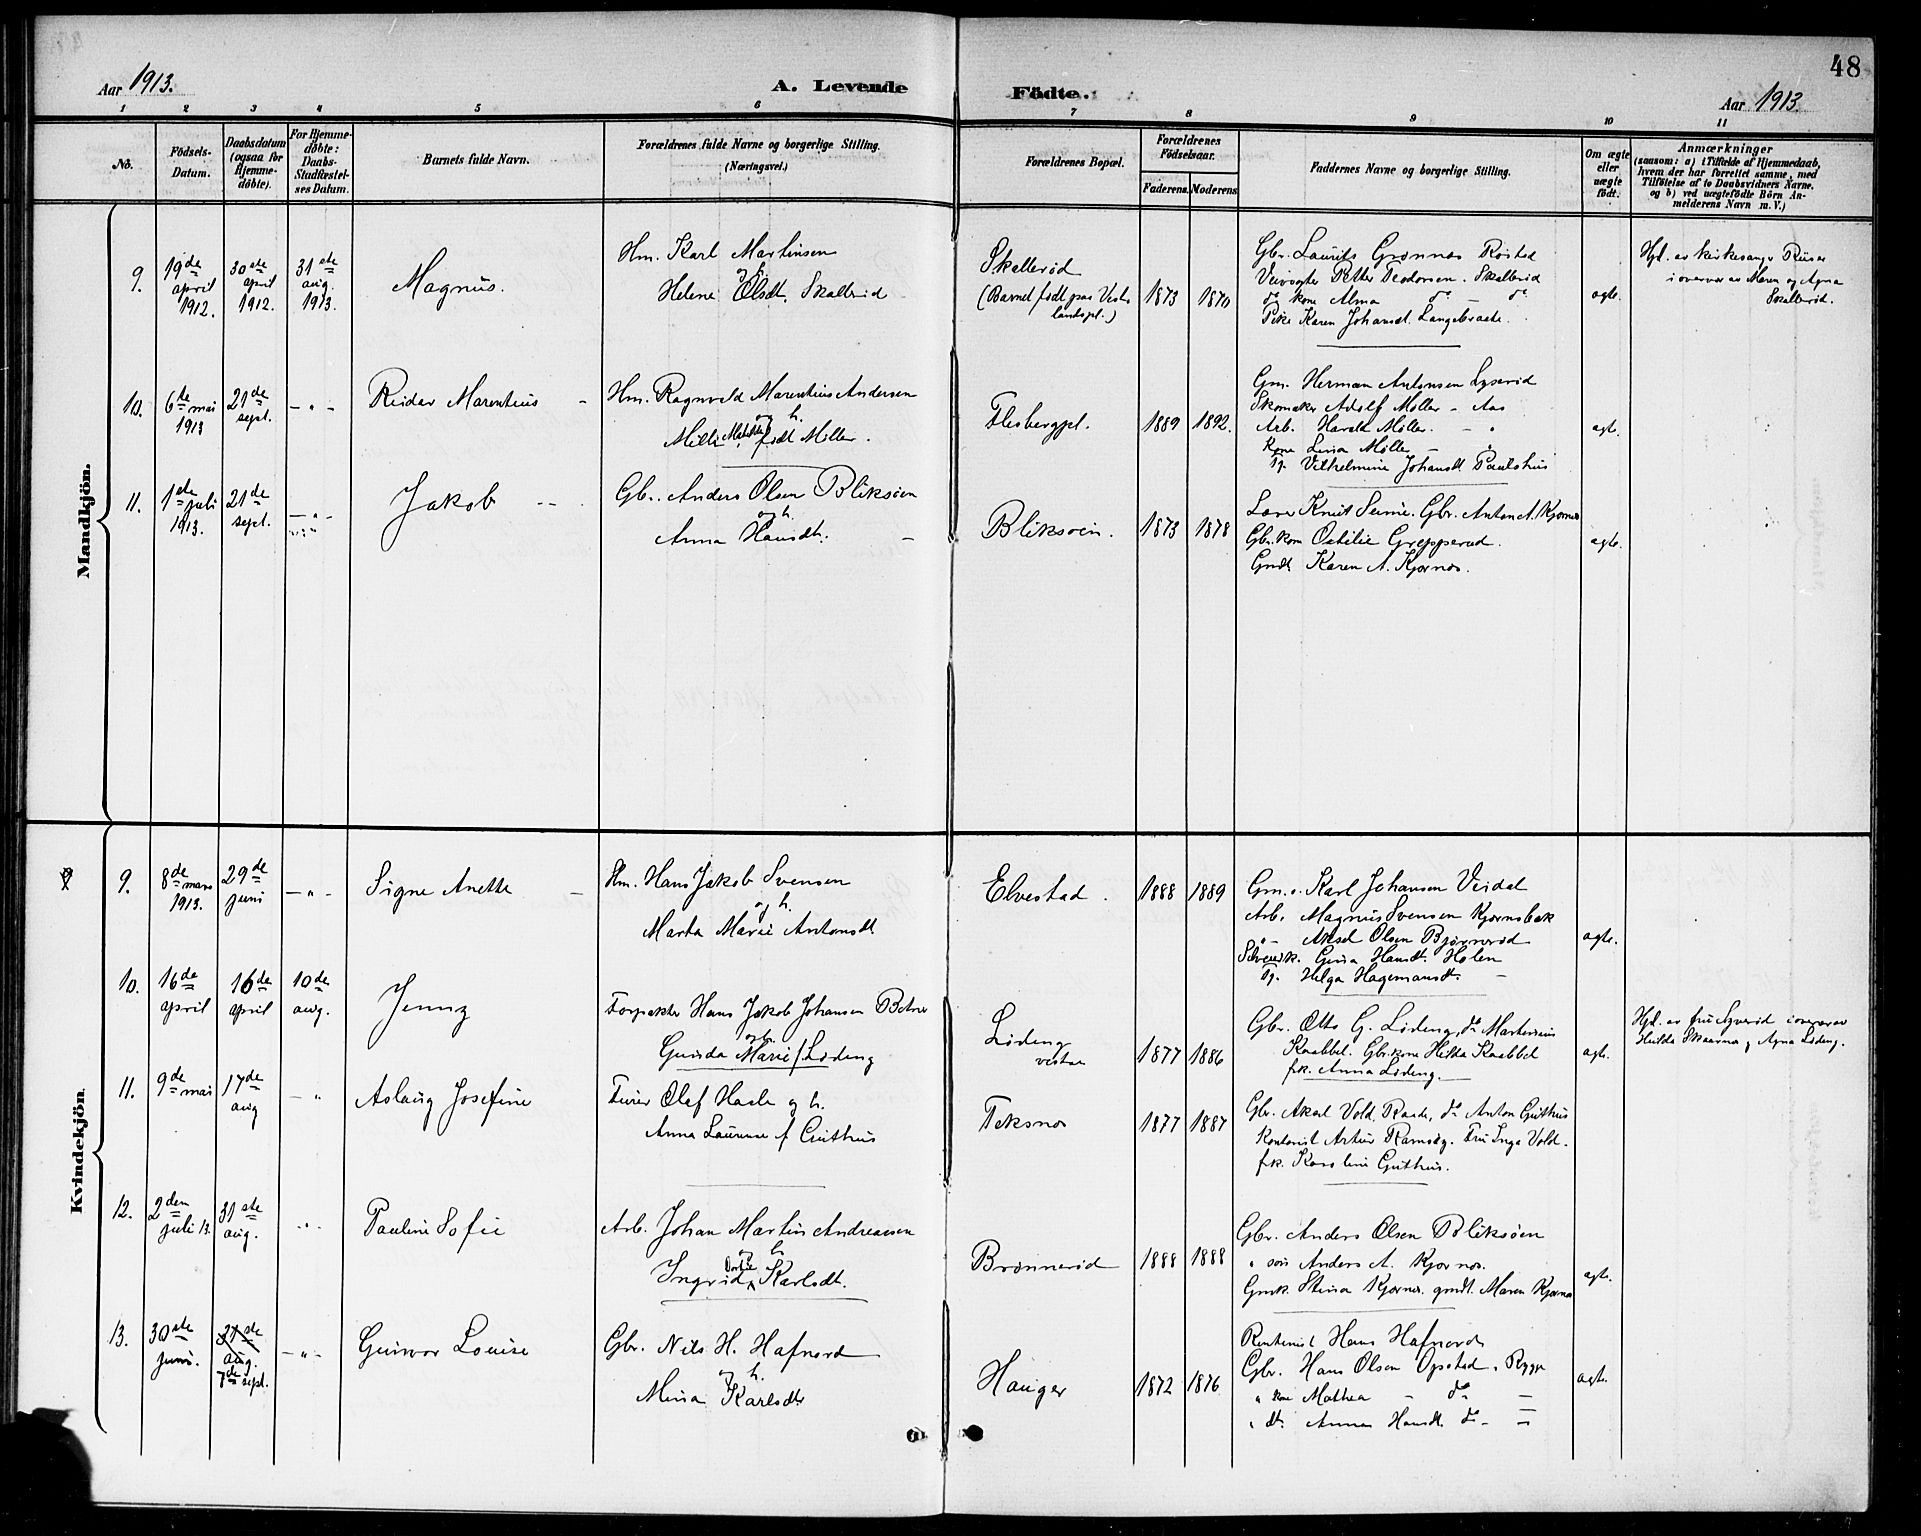 48
Aar 1913.
A. Levende Födte.
Aar 1913.
1 2 3 4 5 6 7 8 9 10 11
No.
Födsels-
Datum.
Daabsdatum
(ogsaa for
Hjemme-
döbte).
For Hjemme-
döbte:
Daabs-
Stadfæstel-
ses Datum.
Barnets fulde Navn.
Forældrenes fulde Navne og borgerlige Stilling.
(Næringsvei.)
Forældrenes Bopæl.
Forældrenes
Födselsaar.
Faderens. Moderens.
Faddernes Navne og borgerlige Stilling.
Om ægte
eller
uægte
født.
Anmærkninger
(saasom: a) i Tilfælde af Hjemmedaab,
hvem der har forrettet samme, med
Tilföielse af to Daabsvidners Navne.
og b) ved uægtefödte Börn An-
melderens Navn m. V.)
Mandkjön.
9.
19de
april
1912.
30te
april
1912.
31ste
aug.
1913.
Magnus.
Hm. Karl Martinsen
og h.
Helene Olsdt. Skallerød
Skallerød
(Barnet født paa Vest-
landspl.)
1873 1870
Gbr. Laurits Grønnes Røstad
Veivogter Petter Teodorsen. Skallerød
do kone Alma do - do
Pike Karen Johansdt. Langebraate.
ægte.
Hjd. av kirkesanger Riiser
i overvær av Maren og Agna
Skallerød.
10.
6te mai
1913
21de
sept.
- " -
Reidar Marentius -
Hm. Ragnvald Marentius Andersen
og h.
Milli Matilde født Møller.
Flesbergpl.
1889 1892.
Gm. Herman Antonsen Lyserød
Skomaker Adolf Møller - Aas
Arb. Harald Møller. - "
Kone Lina Møller -
Tj. Vilhelmine Johansdt. Paulshus
ægt.
11.
1ste juli
1913.
21de
sept.
- " -
Jakob - -
Gbr. Anders Olsen Bliksøen
og h.
Anna Hansdt. -
Bliksøen.
1873 1878
Lærer Knut Seime. Gbr. Anton A. Kjærnes
Gbr.kone Otilie Grepperud.
Gmdt. Karen A. Kjærnes.
ægte.
Kvindekjön.
9.
8de mars
1913.
29de
juni
- " -
Signe Anette -
Hm. Hans Jakob Svensen
og h.
Marta Marie Antonsdt.
Elvestad.
1888 1889
Gm.s. Karl Johansen Veidal
Arb. Magnus Svensen Kjærnsbæk
" - Aksel Olsen Bjørnerød
Gina Hansdt. Holen
Tj. Helga Hagemansdt. -
ægte.
10.
16de
april
16de
april
10de
aug.
Jenny
Forpakter Hans Jakob Johansen Botner
og h.
Gunda Marie f. Løding
Løding
vestre
1877 1886
Gbr. Otto G. Løding, do Martinius
Knabbel. Gbr.kone Hilda Knabbel
frk. Anna Løding.
ægte.
Hjd. av fru Syverød i overvær av
Hulda Skaarna og Agna Løding.
11.
9de mai
17de
aug
- "
Aslaug Josefine
Olaf Hasle og h.
Anna Laurense f. Guthus
Teksnes
1877 1887
Gbr. Aksel Vold Raade, do Anton Guthus
Kontorist Artur Ramsøy. Fru Inga Vold.
frk. Karoline Guthus.
12.
2den
juli 13.
31ste
aug.
- " -
Pauline Sofie
Arb. Johan Martin Andreassen
og h.
Ingrid Dortea Karlsdt.
Brønnerød
1888 1888
Gbr. Anders Olsen Bliksøen
" søn Anders A. Kjærnes.
Gmk. Stina Kjærnes. gmdt. Maren Kjærnes
ægt.
13.
30te
juni.
31ste
aug.
7de sept.
- " -
Gunvor Louise
Gbr. Nils H. Hafnord
og h.
Mina Karlsdt.
Hauger
1872 1876
Rentenist Hans Hafnord
Gbr. Hans Olsen Opstad. Rygge
" kone Mathea - do -
" dt. Anna Hansdt. do - "
ægte.